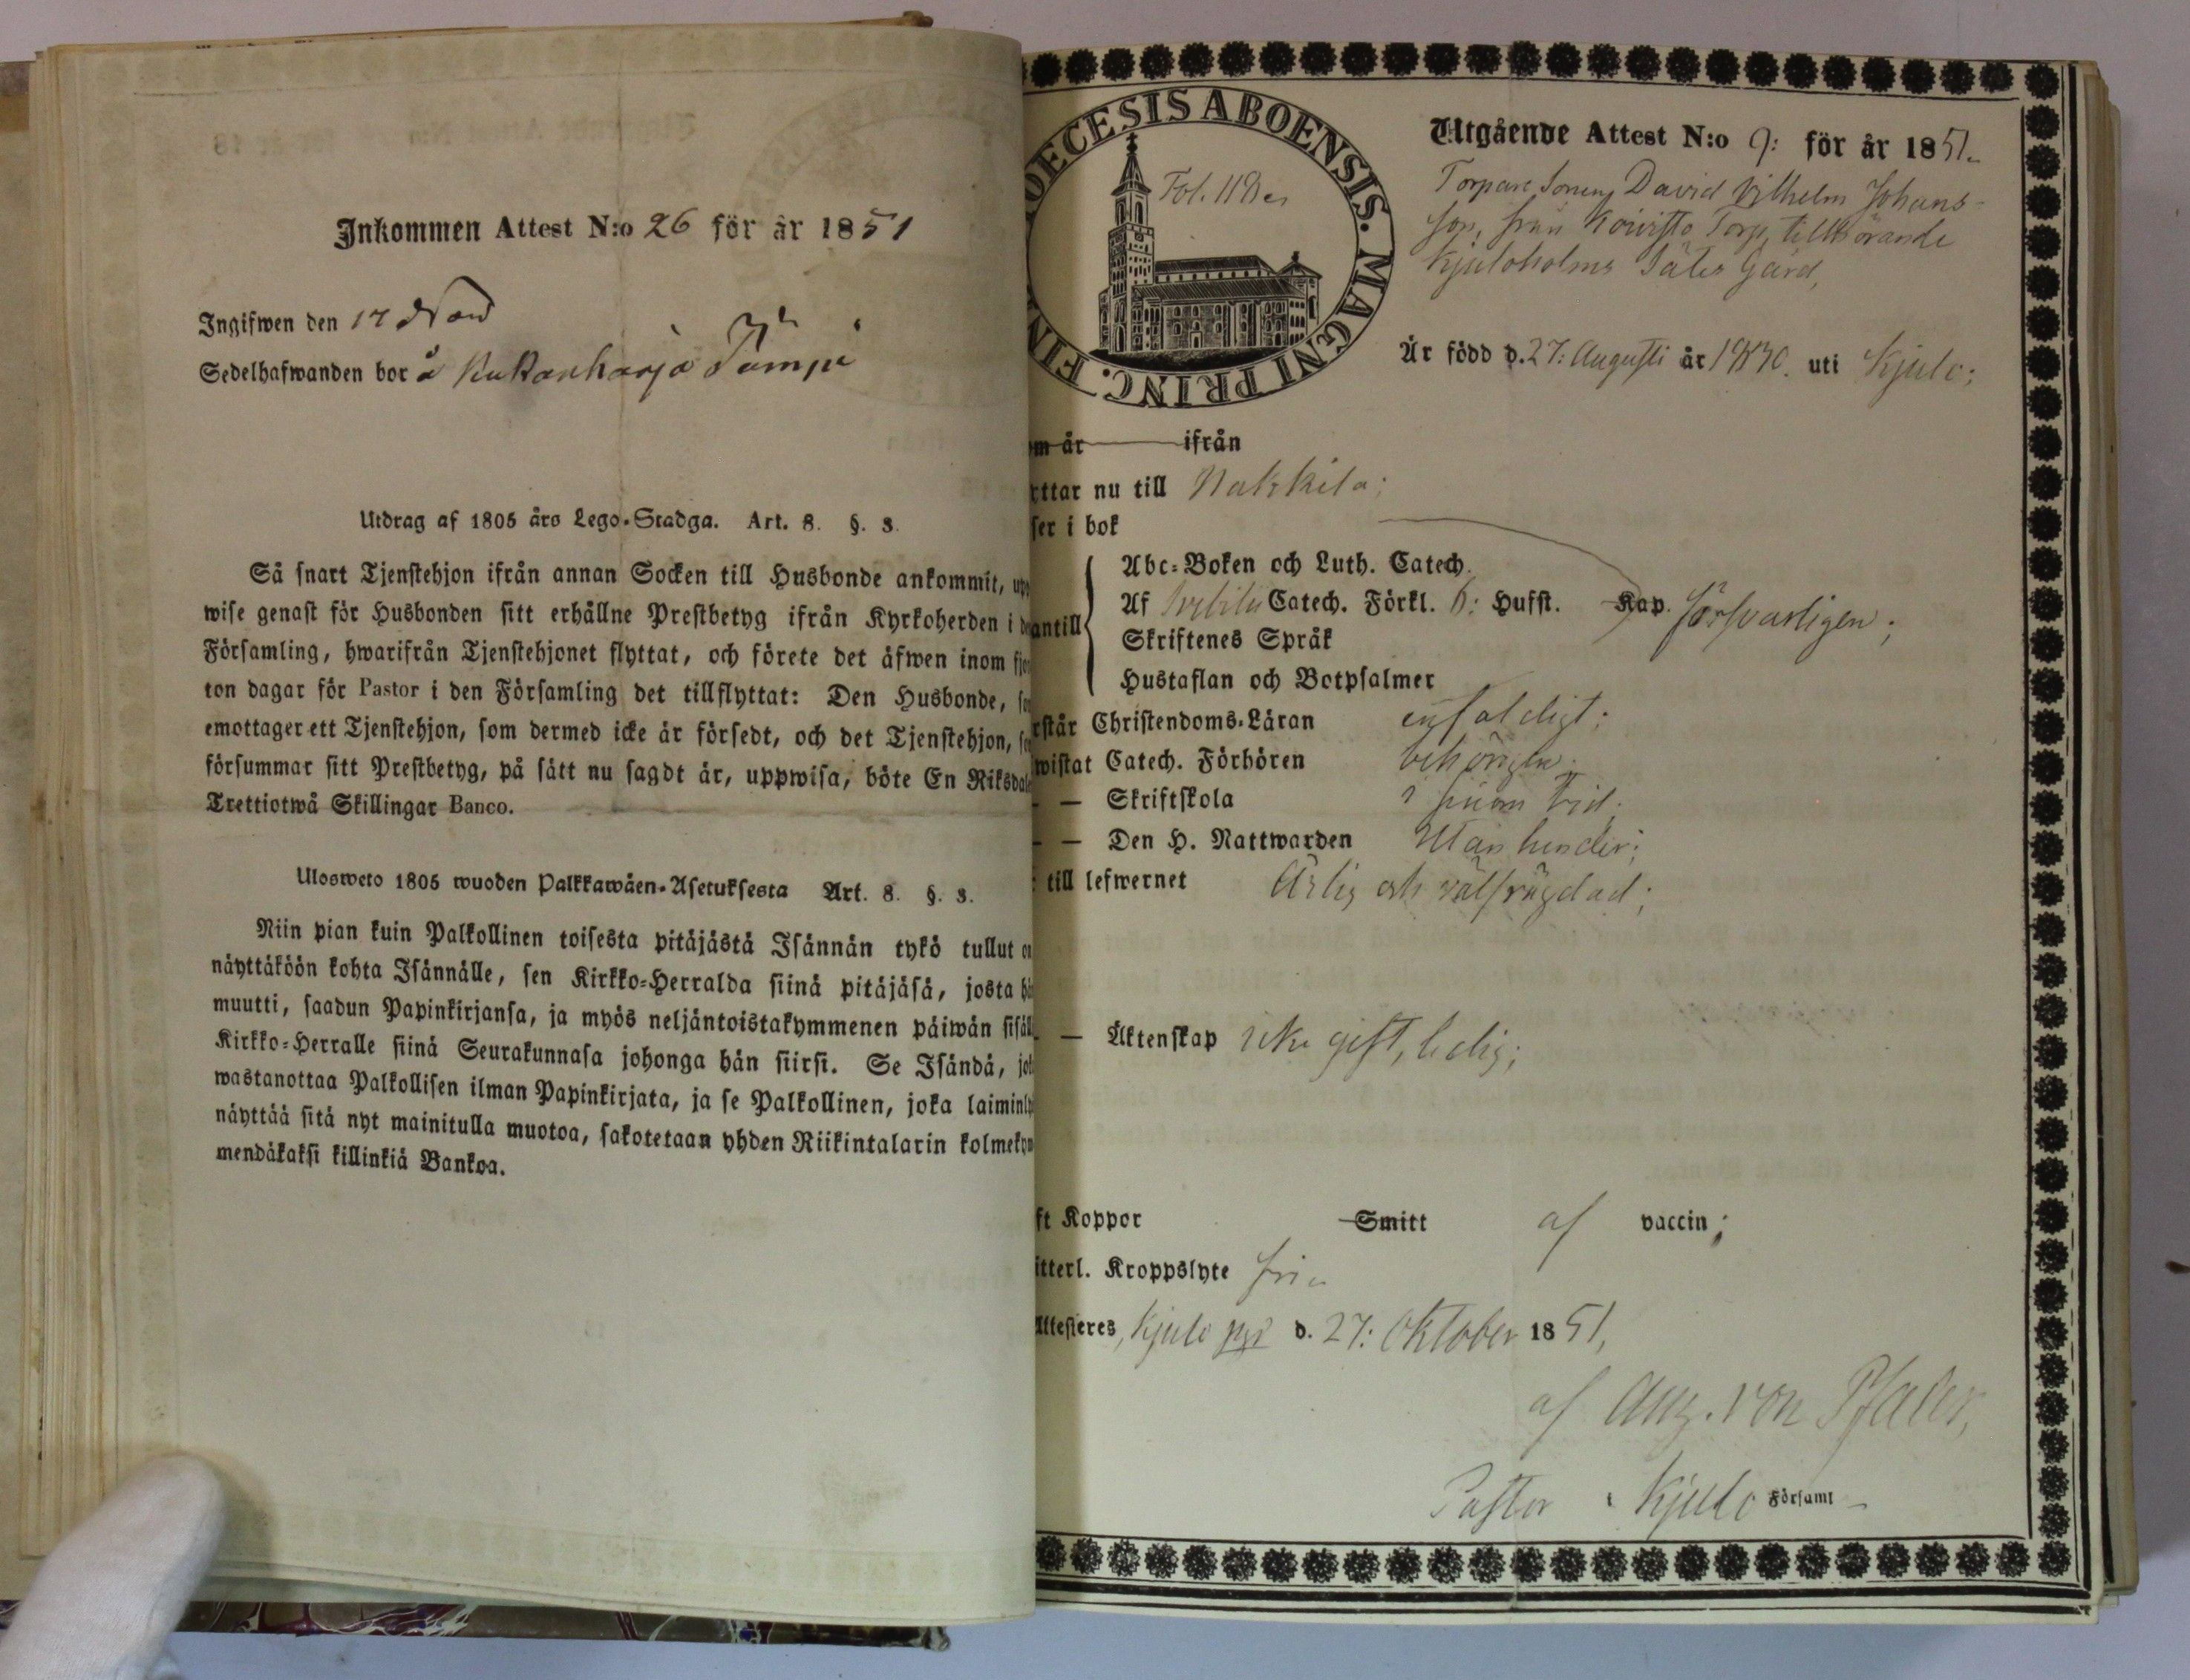 Inkommen Attest N:o 26 för år 1851
Ingifwen den 17 Nov
Sedelhafwanden bor å Kukonharja
Utdrag af 1805 års Lego-Stadga. Art. 8. §. 3.
Så snart Tjenstehjon ifrån annan Socken till Husbonde ankommit, upp
wise genast för Husbonden sitt erhållne Prestbetyg ifrån Kyrkoherden i de
Församling, hwarifrån Tjenstehjonet flyttat, och förete det äfwen inom fjor
ton dagar för Pastor i den Församling det tillflyttat: Den Husbonde, so
emottager ett Tjenstehjon, som dermed icke är försedt, och det Tjenstehjon, so
försummar sitt Prestbetyg, på sätt nu sagdt är, uppwisa, böte En Riksdale
Trettiotwå Skillingar Banco.
Ulosweto 1805 wuoden Palkkawäen-Asetuksesta Art. 8. §. 3.
Niin pian kuin Palkollinen toisesta pitäjästä Isännän tykö tullut on
näyttäköön kohta Isännälle, sen Kirkko-Herralda siinä pitäjäsä, josta hä
muutti, saadun Papinkirjansa, ja myös neljäntoistakymmenen päiwän sisäl
Kirkko-Herralle siinä Seurakunnasa johonga hän siirsi. Se Isändä, jok
wastanottaa Palkollisen ilman Papinkirjata, ja se Palkollinen, joka laiminly
näyttää sitä nyt mainitulla muotoa, sakotetaan yhden Riikintalarin kolmekym
mendäkaksi killinkiä Bankoa.
OECESIS ABOENSIS. MAGNI PRINC. FIN
Fol. 118
Utgående Attest N:o 9: för år 1851.
Torpare Sonen David Vilhelm Johans-
son, från Koivisto Torp, tillhörande
Kjuloholms Säteri Gård,
Är född d. 27: Augusti år 1830. uti Kjulo;
m år ifrån
ttar nu till Nakkila;
ser i bok
antill
Abc-Boken och Luth. Catech.
Af Svebilii Catech. Förkl. 6: Hufst. Kap. försvarligen;
Skriftenes Språk
Hustaflan och Botpsalmer
rstår Christendoms-Läran enfaldigt;
wistat Catech. Förhören behörigen;
— — Skriftskola i sinom tid;
— — Den H. Nattwarden Utan hinder;
: till lefwernet Ärlig och välfrägdad;
— — Äktenskap icke gift, ledig;
ft Koppor Smitt af vaccin;
itterl. Kroppslyte fri
Attesteres, Kjulo d. 27: Oktober 1851,
af Aug. von Pfaler,
Pastor i Kjulo Församl